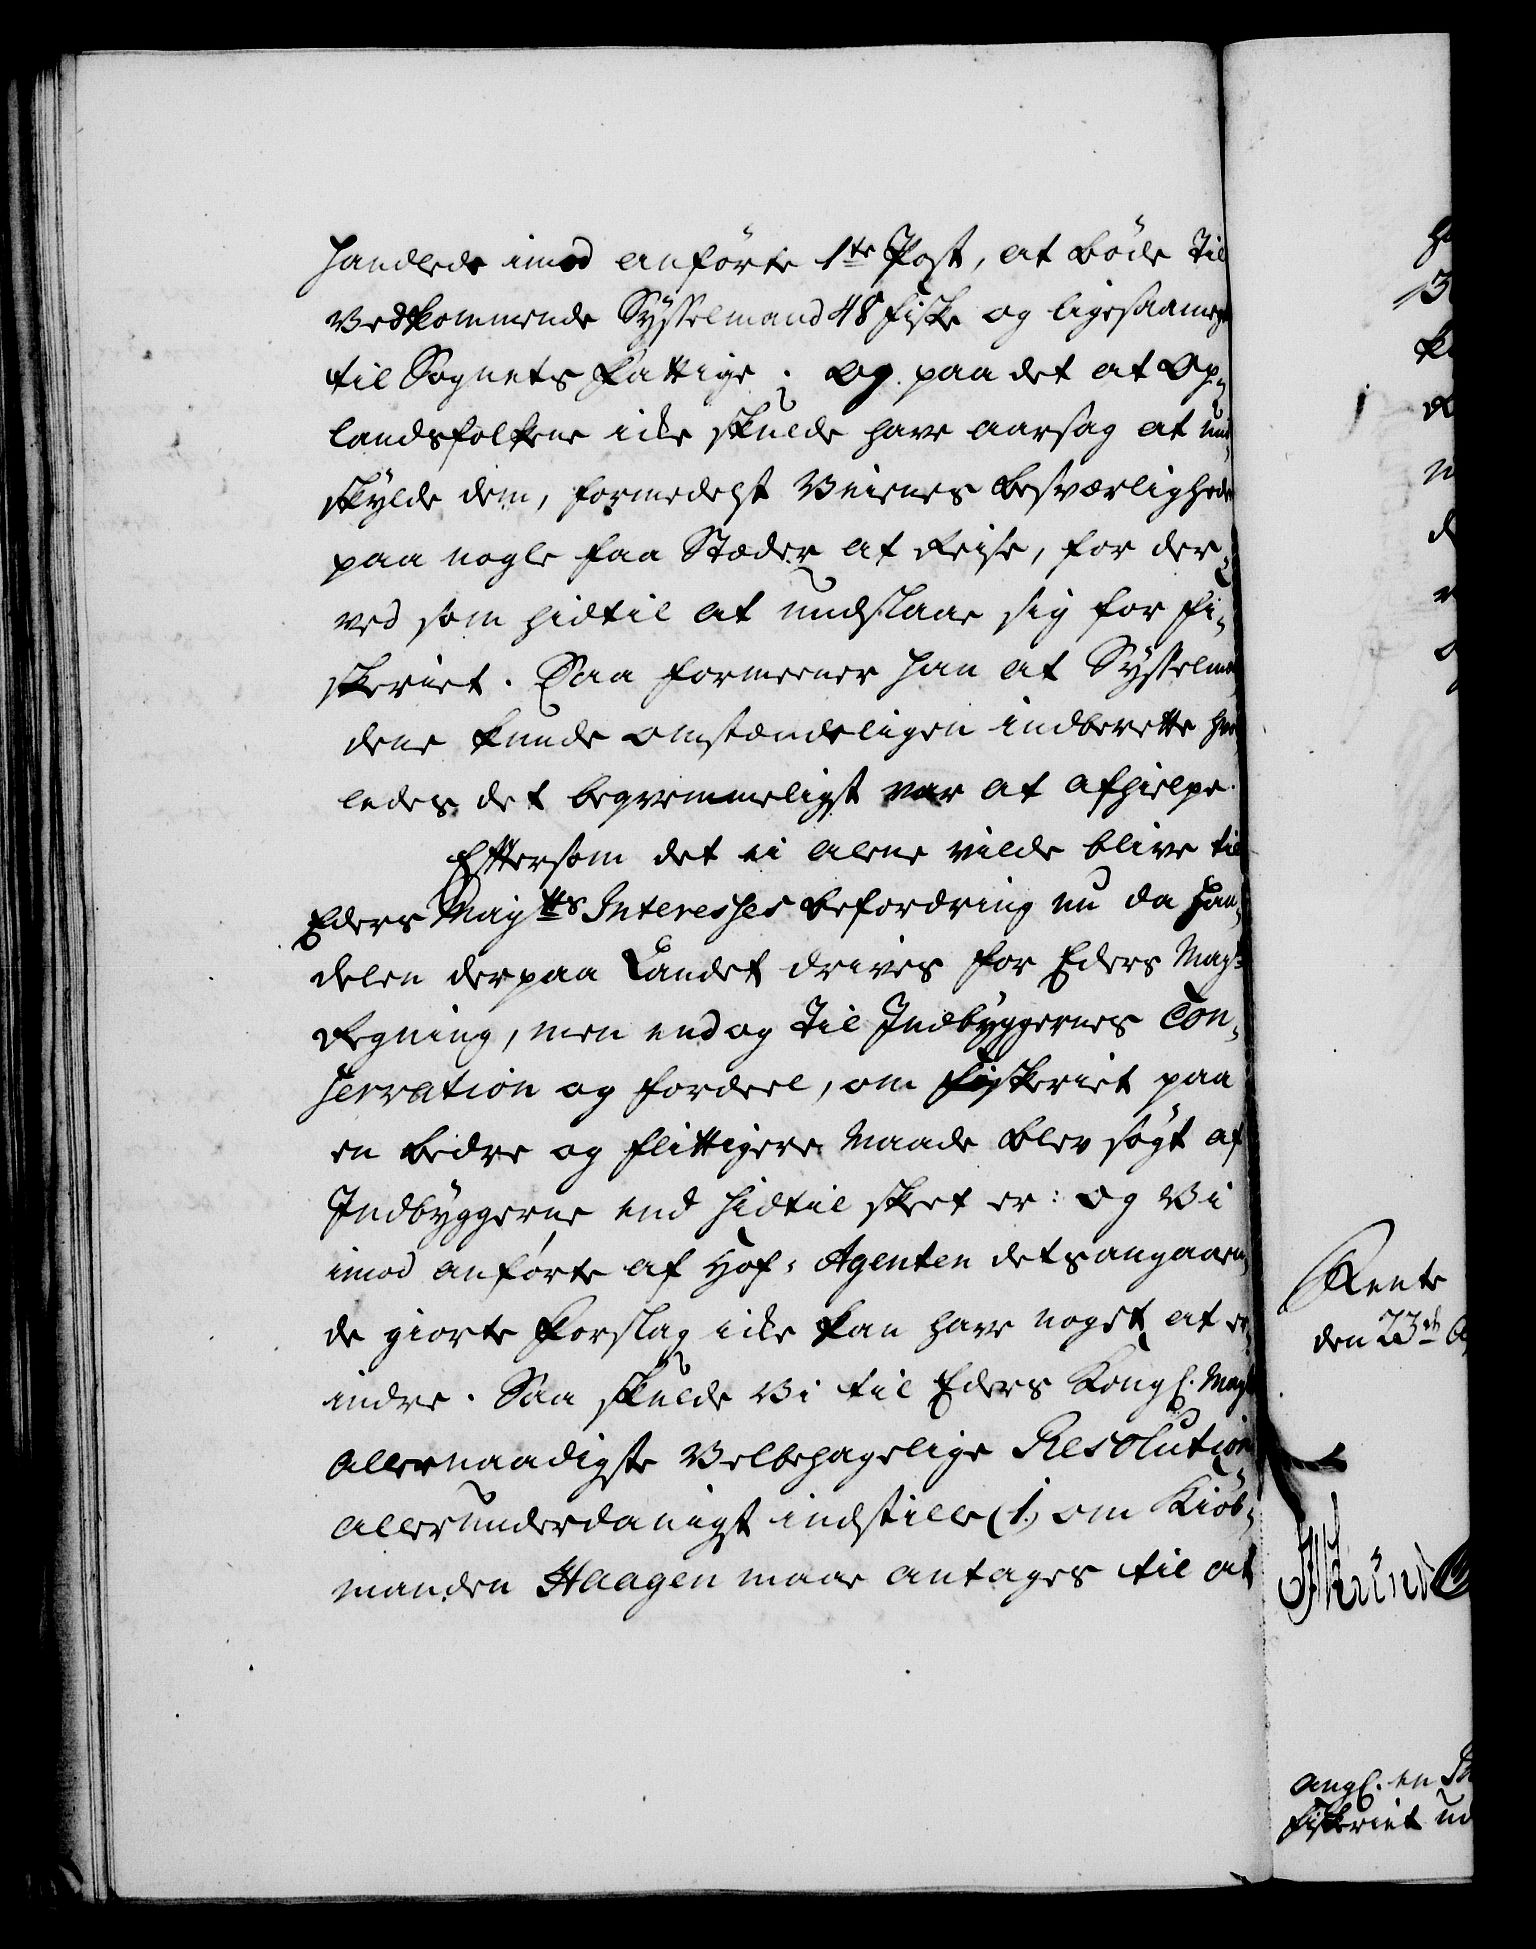 handlede imod anførte 1te Post, at bøde til
Vedkommende Sysselmand 48 fiske og ligesaameget
til Sognets fattige; Og paa det at Op-
landsfolkene icke skulde have aarsag at und-
skylde dem, formedelst Veienes besværligheder
paa nogle faa Stæder at Reise, for der-
ved som hidtil at undslaae sig for Fi-
skeriet. Saa formeener han at Sysselmæn-
dene kunde omstændeligen indberette hvor-
ledes det beqvemmeligst var at afhielpe.
Eftersom det ei alene vilde blive til
Eders Mayts Interesses befordring nu da Han-
delen derpaa Landet drives for Eders Mayts
Regning, men endog til Indbyggernes Con-
servation og fordeel, om fiskeriet paa
en bedre og flittigere Maade blev søgt af
Indbyggerne end hidtil skeet er: og Vi
imod anførte af Hof-Agenten detsangaaen-
de giorte Forslag icke kan have noget at er-
indre. Saa skulde Vi til Eders Kongl. Mayts
allernaadigste Velbehagelige Resolution
allerunderdanigst indstille (1.) om Kiøb-
manden Haagen maae antages til at
Rente
den 23de
angl. en
fiskeriet